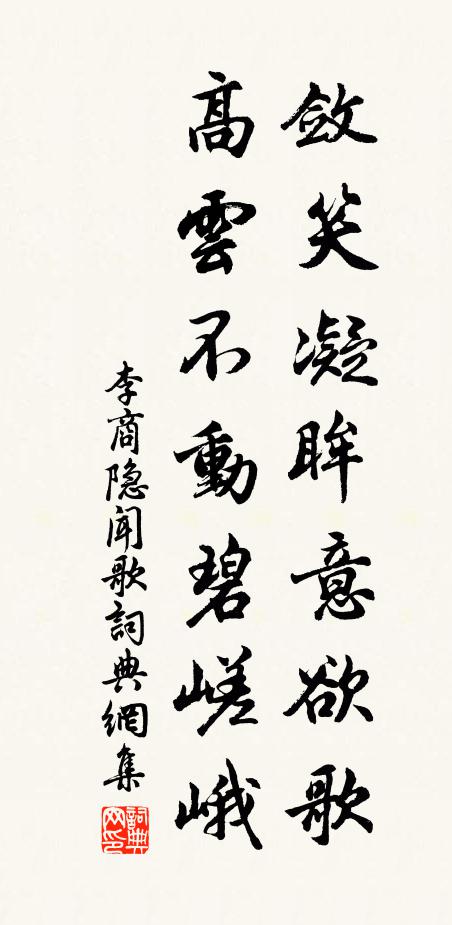 敛笑凝眸意欲歌
高雲不動碧嵯峨
李商隐聞歌詞典網集
詞典網印